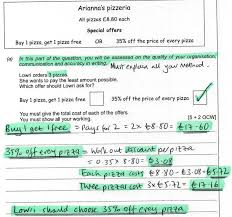 Arianna's pizzeria
All pizzas £8.80 each
Special offers
Buy 1 pizza, get 1 pizza free OR 35% off the price of every pizza
In this part of the question, you will be assessed on the quality of your organisation, communication and accuracy in writing. Must explain all your method.
Lowri orders 3 pizzas.
She wants to pay the least amount possible.
Which offer should Lowri ask for?
Buy 1 pizza, get 1 pizza free 35% off the price of every pizza ✓
You must show all your working. [5 + 2 OCW]
Buy 1 get 1 free = Pays for 2 = 2 × £8.80 = £17.60
35% off every pizza = Work out discount per pizza
= 0.35 × 8.80 = £3.08
Each pizza costs £8.80 - £3.08 = £5.72
Three pizzas cost 3 × £5.72 = £17.16
Lowri should choose 35% off every pizza